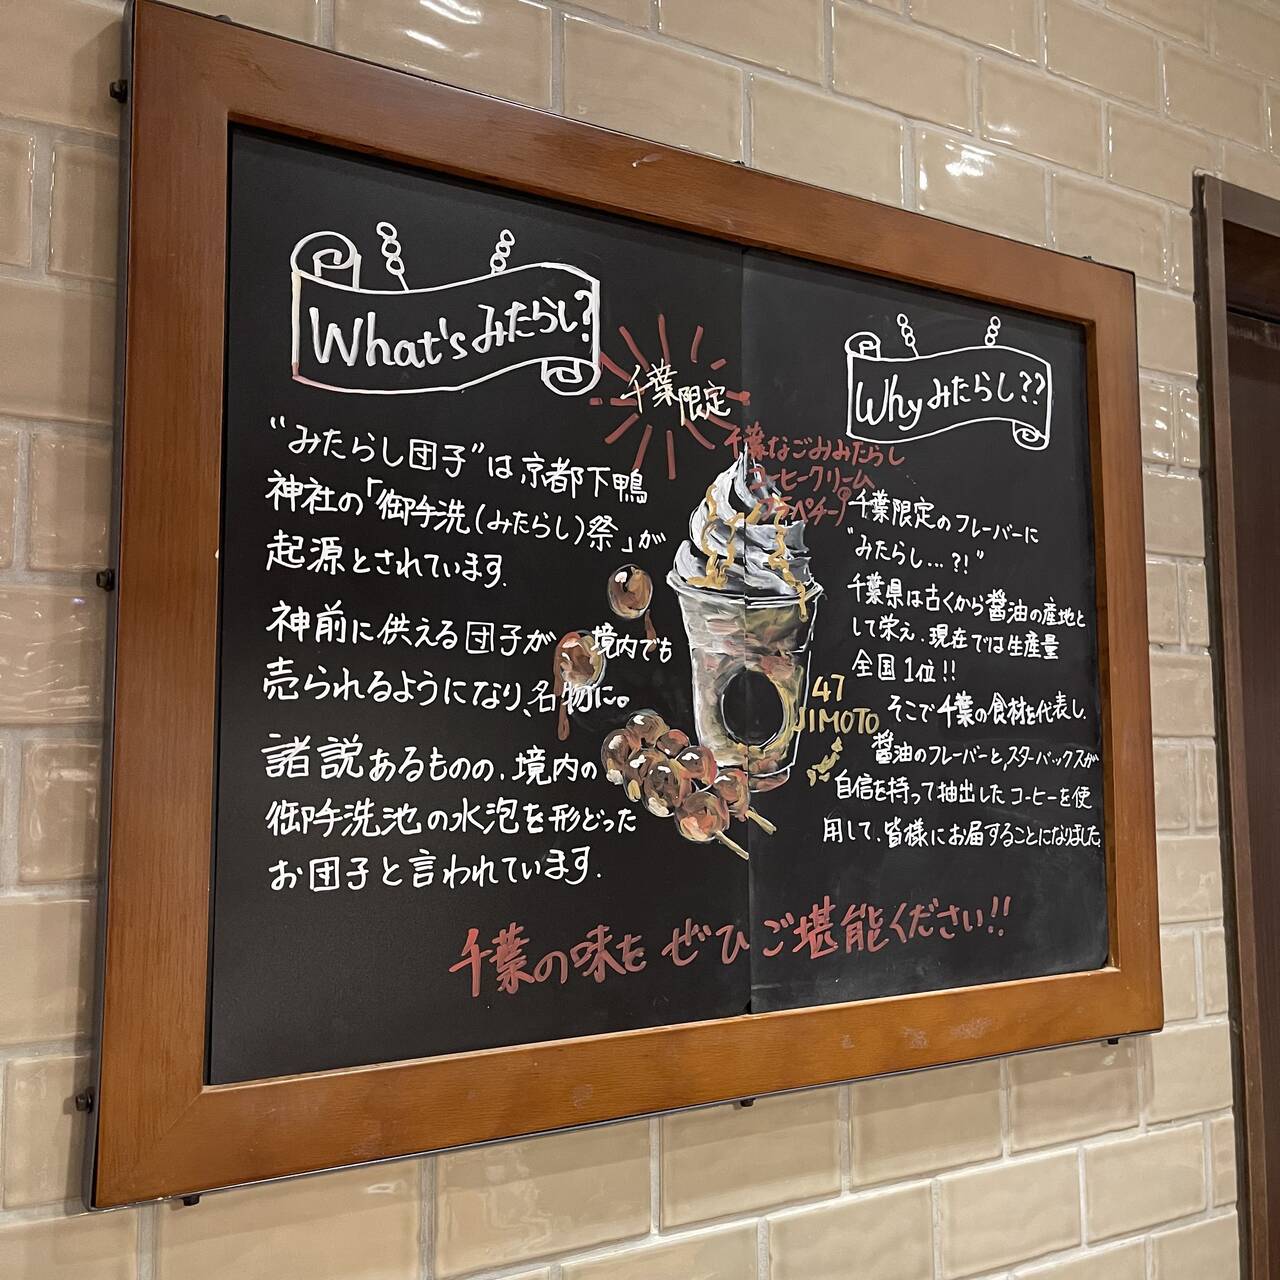 What's みたらし?
"みたらし団子"は京都下鴨
神社の「御手洗(みたらし)祭」が
起源とされています.
神前に供える団子が、境内でも
売られるようになり、名物に。
諸説あるものの、境内の
御手洗池の水泡を形どった
お団子と言われています.
千葉限定
千葉なごみみたらし
コーヒークリーム
フラペチーノ®
47
JIMOTO
Why みたらし??
千葉限定のフレーバーに
"みたらし...?!"
千葉県は古くから醤油の産地と
して栄え、現在では生産量
全国1位!!
そこで千葉の食材を代表し、
醤油のフレーバーと、スターバックスが
自信を持って抽出したコーヒーを使
用して、皆様にお届することになりました。
千葉の味をぜひご堪能ください!!